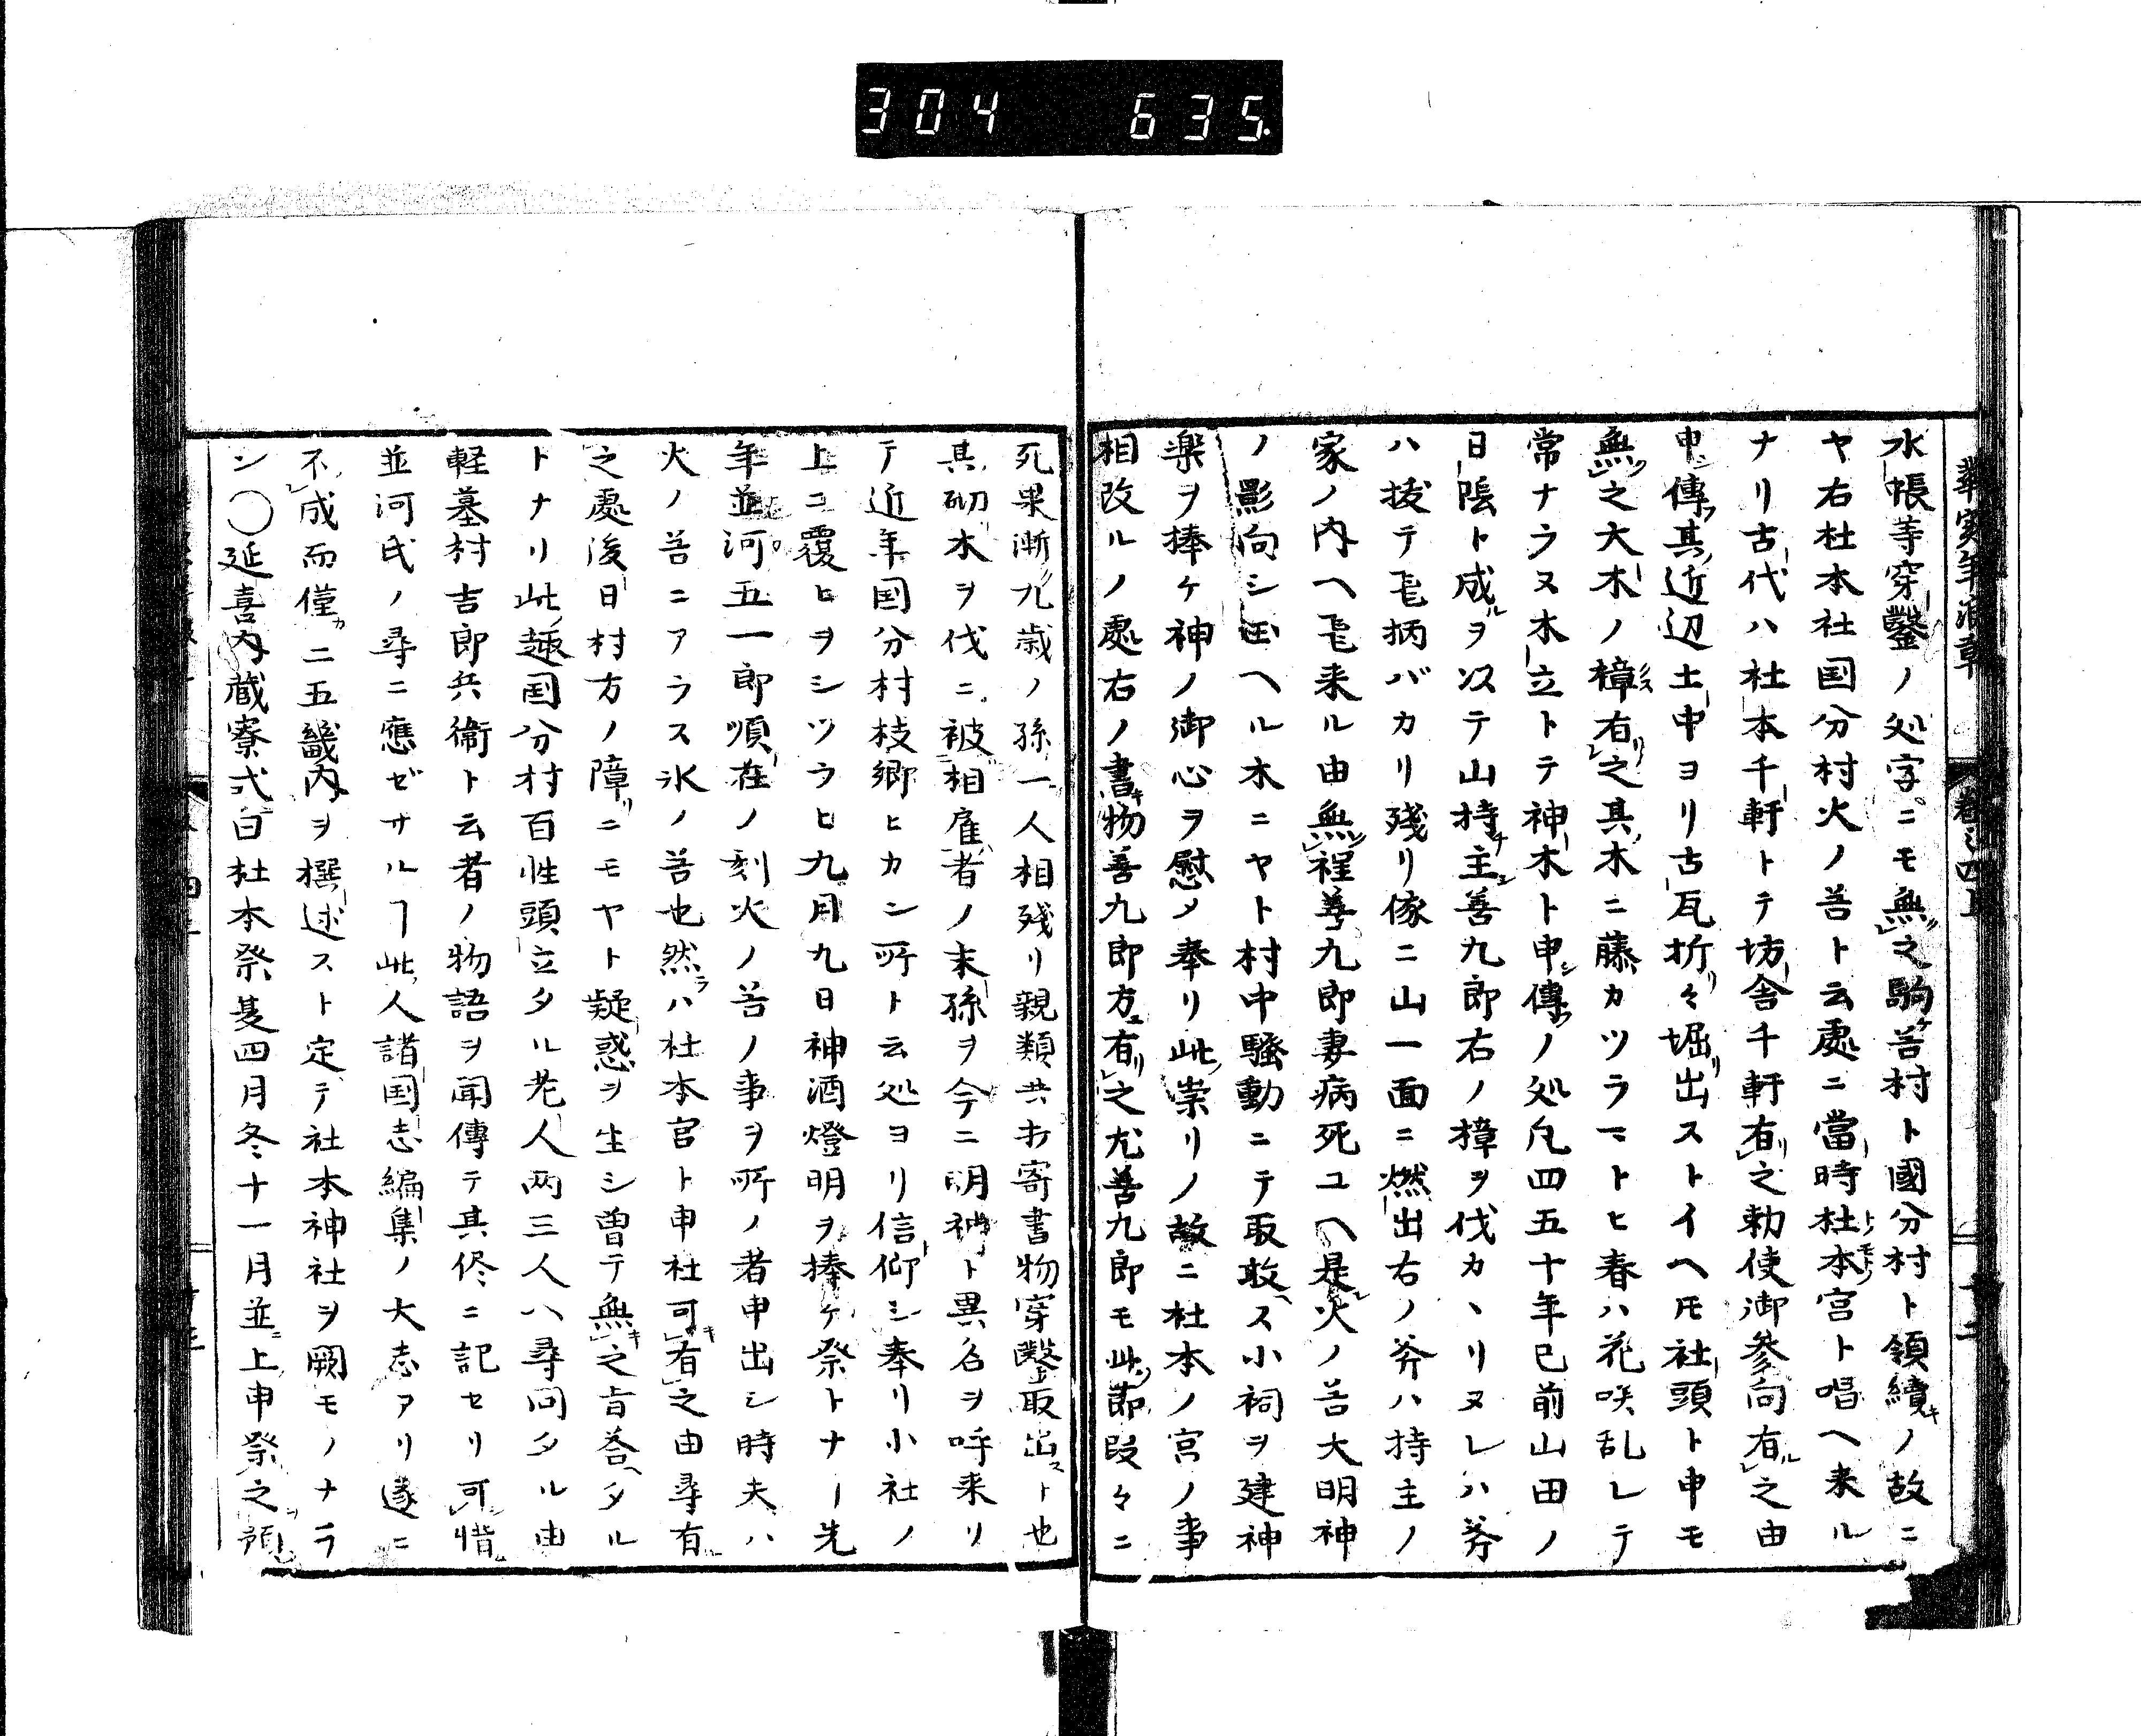 304 635
華実年浪草 巻之四上 十二
水帳等穿鑿ノ処字ニモ無之駒苦村ト國分村ト領續ノ故ニ
ヤ右杜本社国分村火ノ苦ト云處ニ當時杜本宮ト唱ヘ来ル
ナリ古代ハ杜本千軒トテ坊舎千軒有之勅使御参向有之由
申傳其近辺土中ヨリ古瓦折々堀出ストイヘ𪜈社頭ト申モ
無之大木ノ樟有之其木ニ藤カツラマトヒ春ハ花咲乱レテ
常ナラヌ木立トテ神木ト申傳ノ処凡四五十年已前山田ノ
日陰ト成ヲ以テ山持主善九郎右ノ樟ヲ伐カヽリヌレハ斧
ハ抜テ飛柄バカリ残リ俄ニ山一面ニ燃出右ノ斧ハ持主ノ
家ノ内ヘ飛来ル由無程善九郎妻病死ユヘ是火ノ苦大明神
ノ影向シ玉ヘル木ニヤト村中騒動ニテ取敢ス小祠ヲ建神
楽ヲ捧ケ神ノ御心ヲ慰メ奉リ此祟リノ故ニ杜本ノ宮ノ事
相改ルノ處右ノ書物善九郎方有之尤善九郎モ此節段々ニ
死果漸九歳ノ孫一人相残リ親類共打寄書物穿鑿取出スト也
其砌木ヲ伐ニ被相雇者ノ末孫ヲ今ニ明神ト異名ヲ呼来リ
テ近年国分村枝郷ヒカン所ト云処ヨリ信仰シ奉リ小社ノ
上ニ覆ヒヲシツラヒ九月九日神酒燈明ヲ捧ケ祭トナー先
年並河五一郎順在ノ刻火ノ苦ノ事ヲ所ノ者申出シ時夫ハ
火ノ苦ニアラス氷ノ苦也然ハ杜本宮ト申社可有之由尋有
之處後日村方ノ障ニモヤト疑惑ヲ生シ曽テ無之旨荅タル
トナリ此趣国分村百性頭立タル老人両三人ハ尋問タル由
軽墓村吉郎兵衛ト云者ノ物語ヲ聞傳テ其侭ニ記セリ可惜
並河氏ノ尋ニ應ゼサルヿ此人諸国志編集ノ大志アリ遂ニ
不成而僅ニ五畿内ヲ撰述スト定テ社本神社ヲ闕モノナラ
ン〇延喜内蔵寮式曰杜本祭夏四月冬十一月並上申祭之預